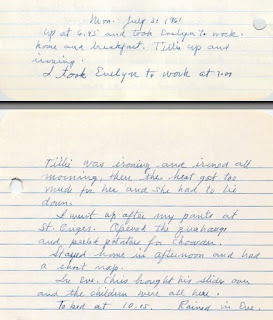 Mon. July 31 1961
Up at 6.45 and took Evelyn to work.
home and breakfast. Tillie up and
ironing.
I took Evelyn to work at 7.00
Tillie was ironing and ironed all
morning, then the heat got too
much for her and she had to lie
down.
I went up after my pants at
St. Onges. Opened the quahaugs
and peeled potatoes for chowder.
Stayed home in afternoon and had
a short nap.
In eve. Chris brought his slides over
and the children were all here.
To bed at 10.15. Rained in Eve.